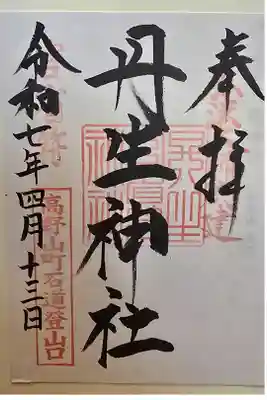 奉拝
丹生神社
令和七年四月十三日
高野山町石道登山口